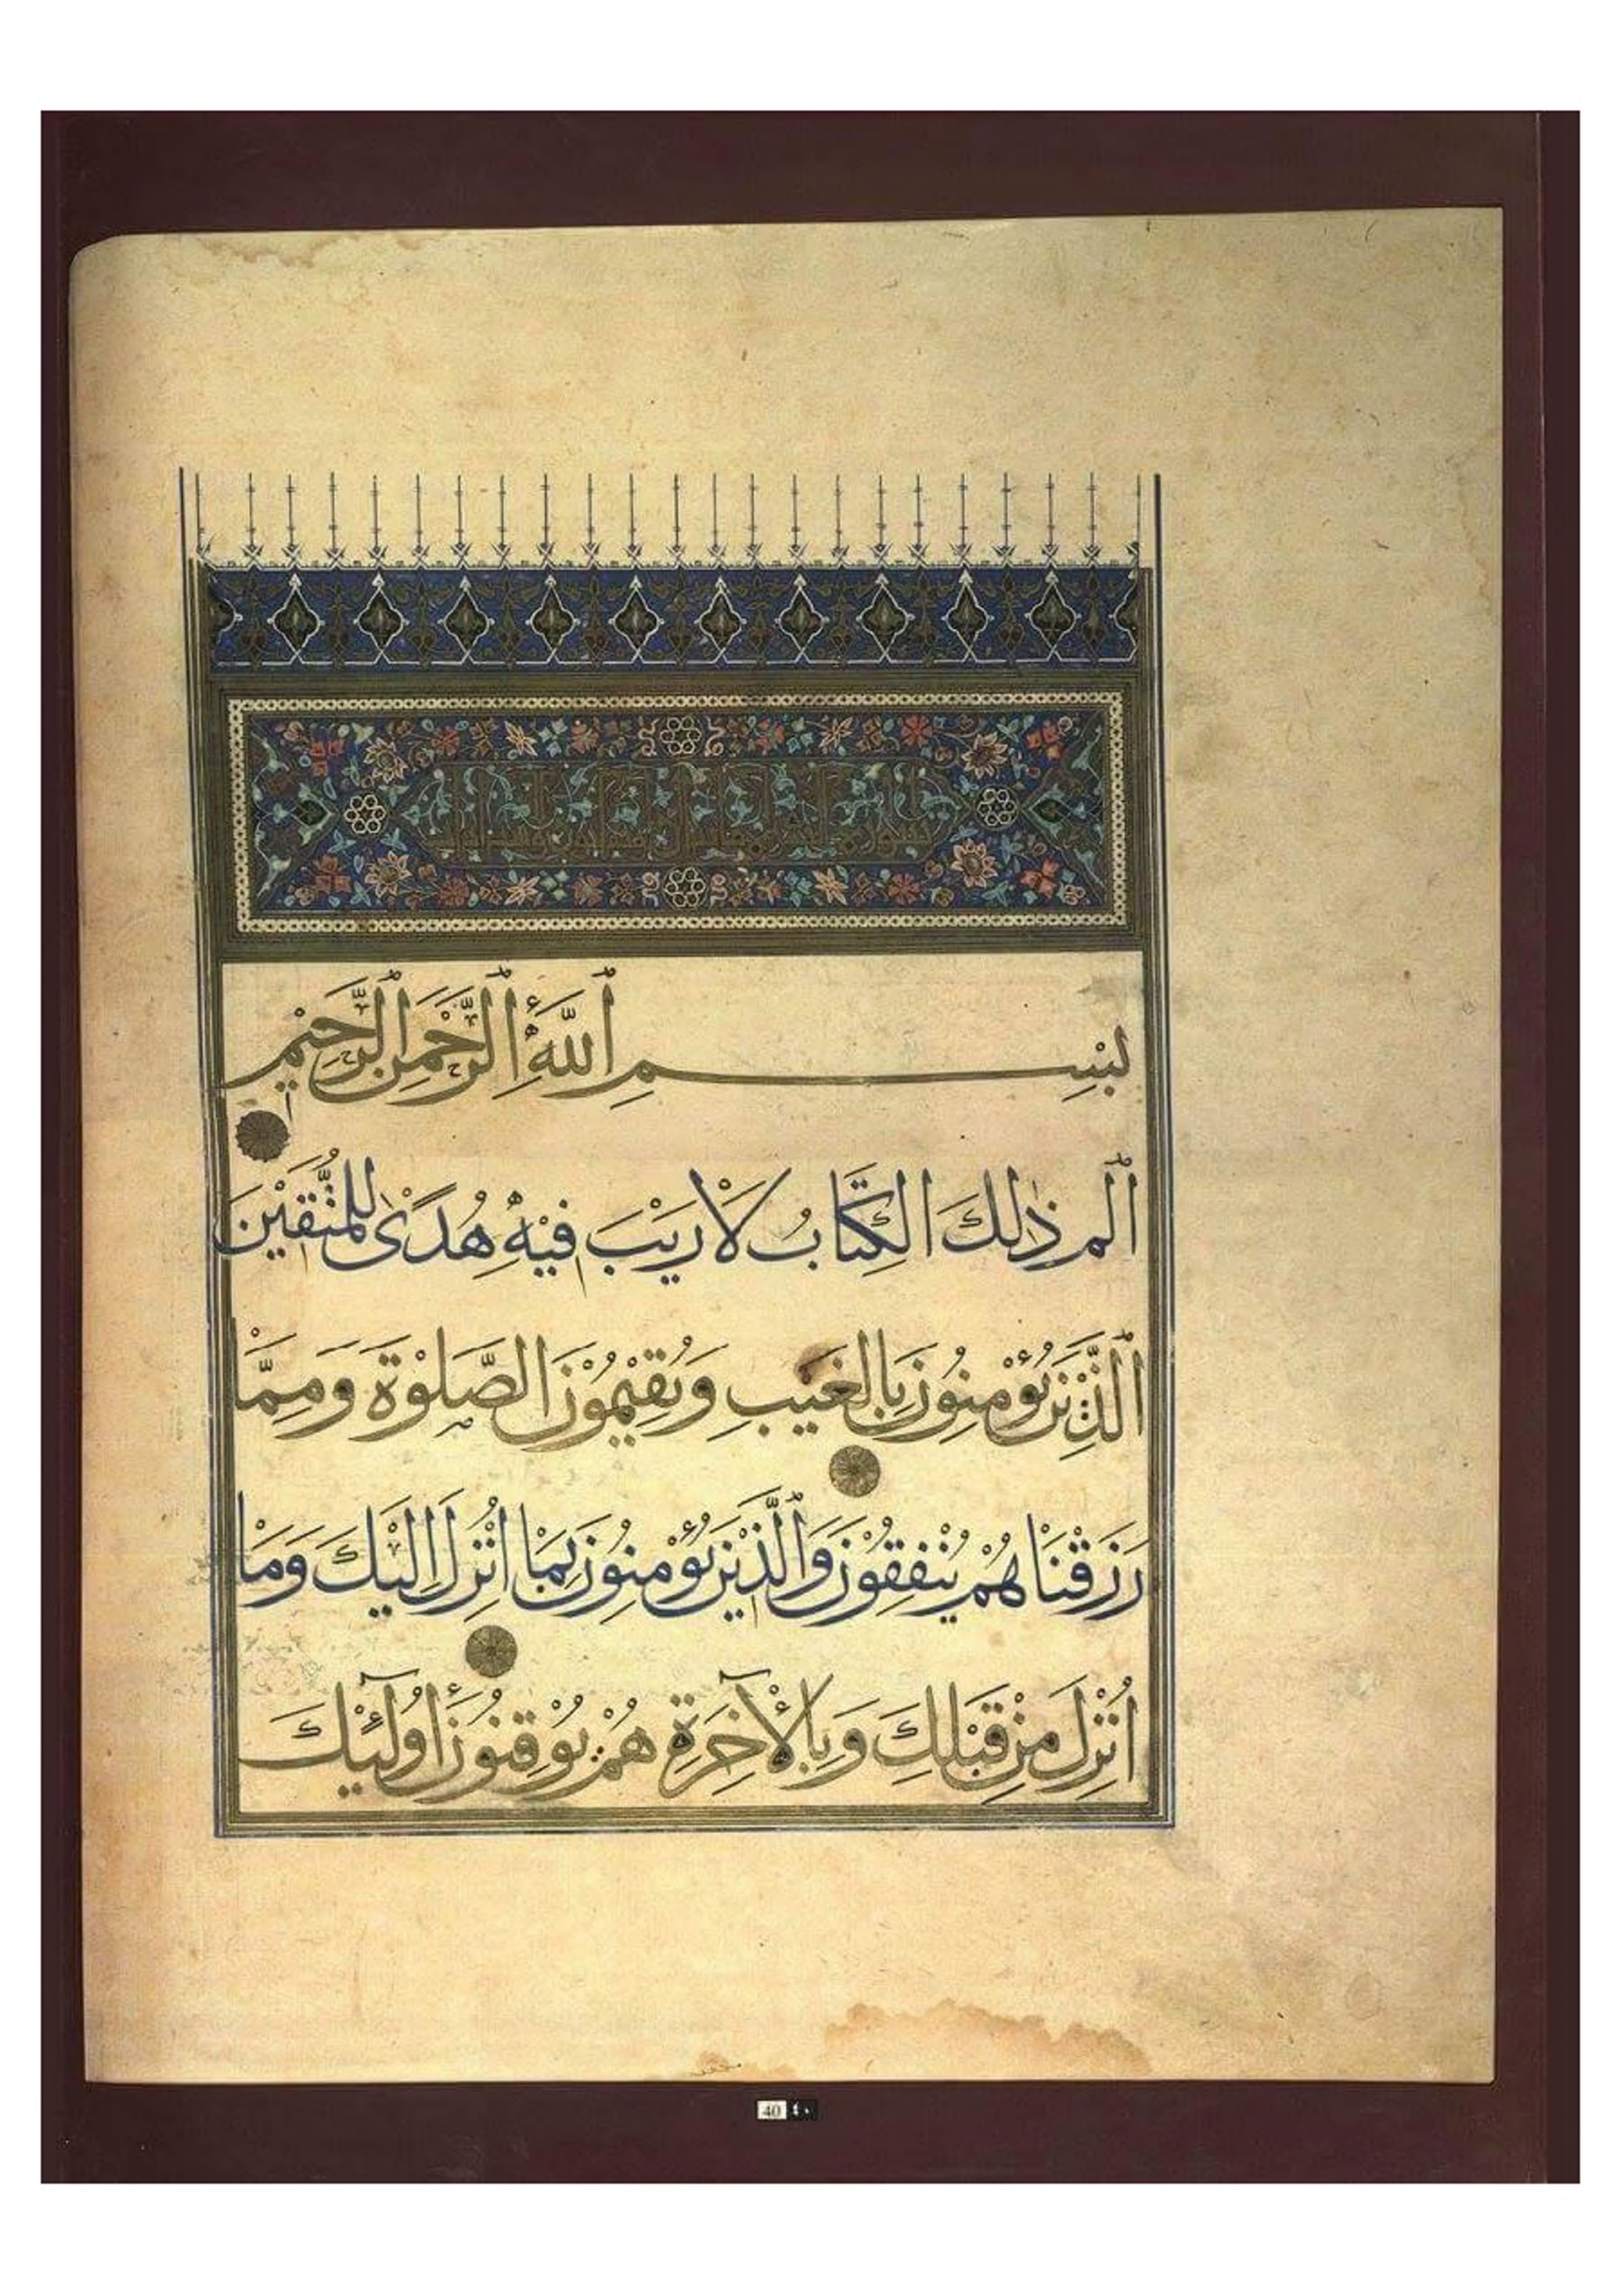 بِسْمِ ٱللَّهِ ٱلرَّحْمَنِ ٱلرَّحِيْمِ
ٱلم ذٰلِكَ الْكِتَابُ لَا رَيْبَ فِيْهِ هُدًى لِلْمُتَّقِيْنَ
ٱلَّذِيْنَ يُؤْمِنُوْنَ بِالْغَيْبِ وَيُقِيْمُوْنَ الصَّلٰوةَ وَمِمَّا
رَزَقْنَاهُمْ يُنْفِقُوْنَ وَٱلَّذِيْنَ يُؤْمِنُوْنَ بِمَا اُنْزِلَ اِلَيْكَ وَمَا
اُنْزِلَ مِنْ قَبْلِكَ وَبِالْأٓخِرَةِ هُمْ يُوْقِنُوْنَ اُولٰٓئِكَ
40 ٤٠